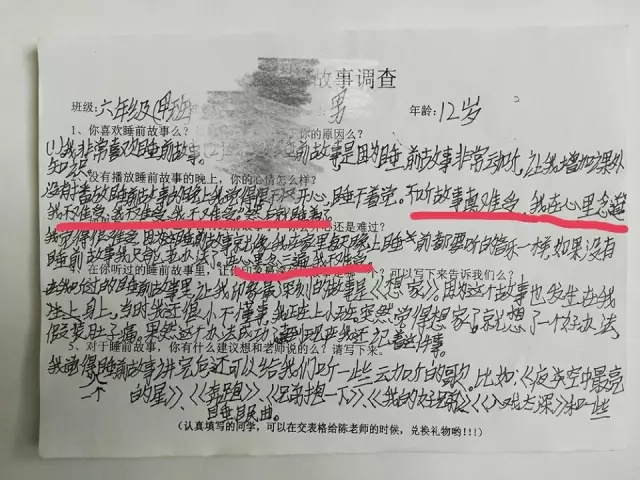 故事调查
班级:六年级(男班 男 年龄:12岁
1、你喜欢睡前故事么? 你的原因么?
(1)我非常喜欢睡前故事。 睡前故事是因为睡前故事非常动听,让我增加课外
知识。
没有播放睡前故事的晚上,你的心情怎么样?
没有播放睡前故事的晚上我觉得很不开心,睡不着觉。不听故事真难受,我在心里念道
我不难受,我不难受,我不难受,然后我睡着
心还是难过?
我觉得很难受 因为睡前故事 我在家里每天晚上睡 前都要听的音乐一样,如果没有
睡前故事我只能 心里念三遍我不难受
在你听过的睡前故事里,让你 ?可以写下来告诉我们么?
在我听过的睡前故事里,让我印象最深刻的故事是《想家》因为这个故事也发生在我
身上,当时我还很小不懂事,我在 突然觉得想家了就想了一个好办法
假装肚子痛,果然这个办法成功了 到现在我还记着这件事。
5、对于睡前故事,你有什么建议想和老师说的么?请写下来。
我觉得睡前故事讲完后还可以给我们听一些动听的歌。比如:《夜空中最亮
的星》、《奔跑》、《 想一下》、《我的好 》《入戏太深》和一些
睡眠曲。
(认真填写的同学,可以在交表格给陈老师的时候,兑换礼物哟!!!)